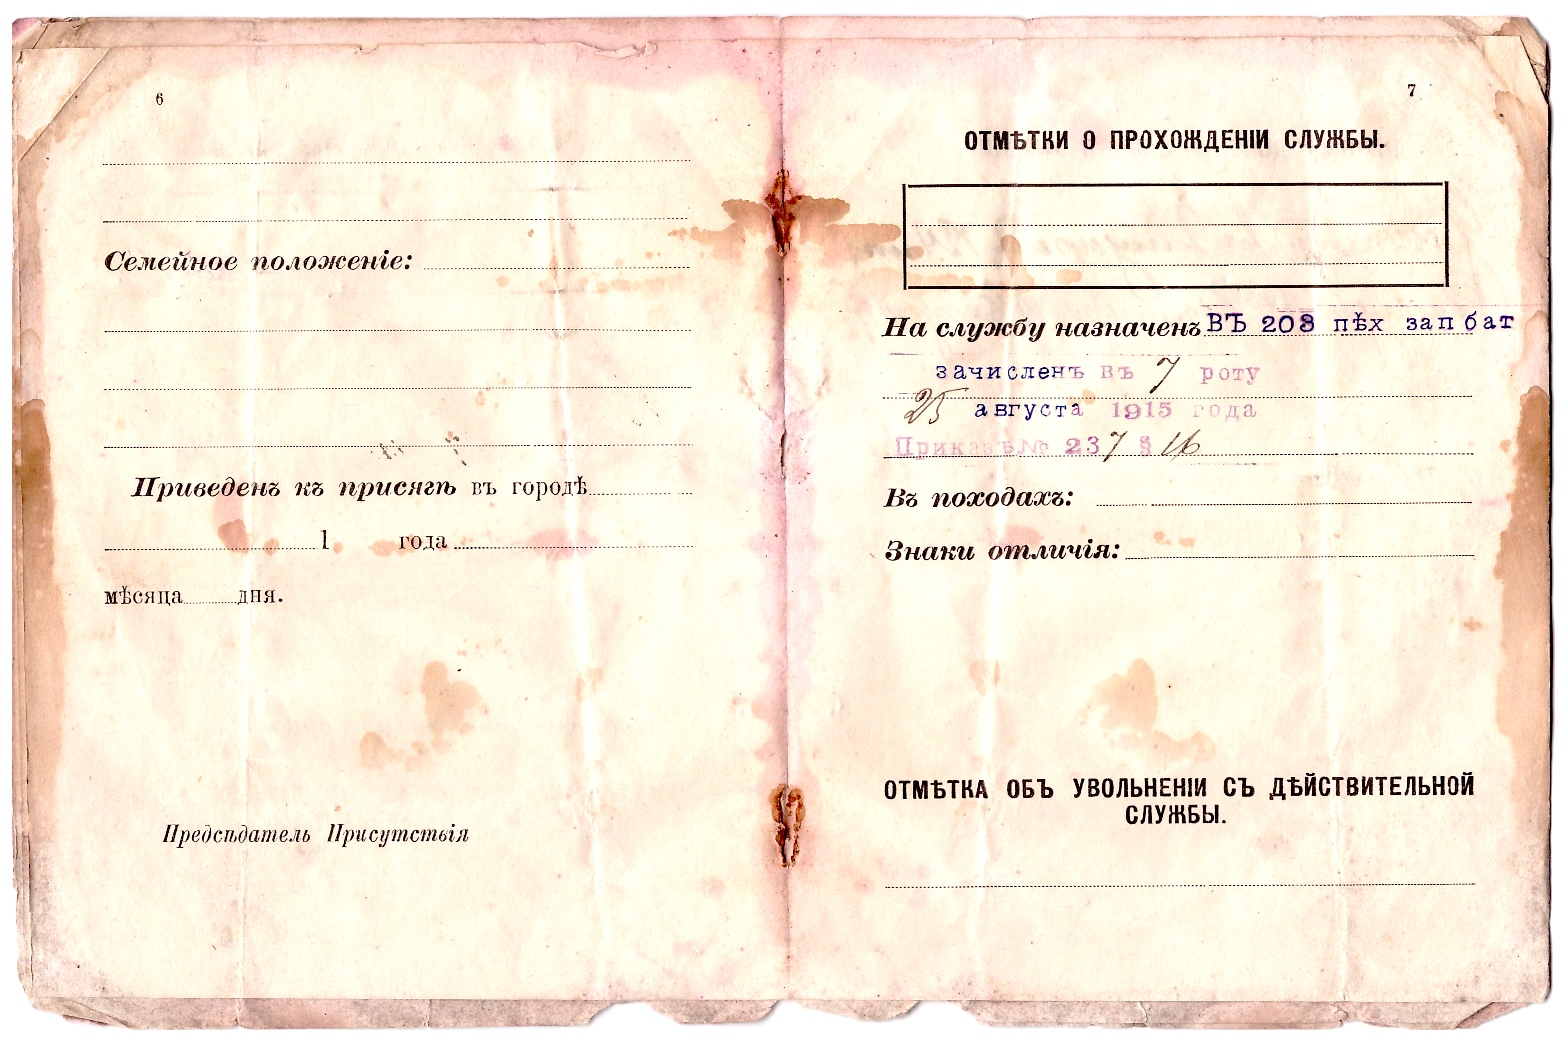 6
Семейное положеніе:
Приведенъ къ присягѣ въ городѣ
1 года
мѣсяца дня.
Предсѣдатель Присутствія
7
ОТМѢТКИ О ПРОХОЖДЕНІИ СЛУЖБЫ.
На службу назначенъ ВЪ 208 пѣх зап бат
зачисленъ въ 7 роту
25 августа 1915 года
Приказъ № 237 § 16
Въ походахъ:
Знаки отличія:
ОТМѢТКА ОБЪ УВОЛЬНЕНІИ СЪ ДѢЙСТВИТЕЛЬНОЙ
СЛУЖБЫ.